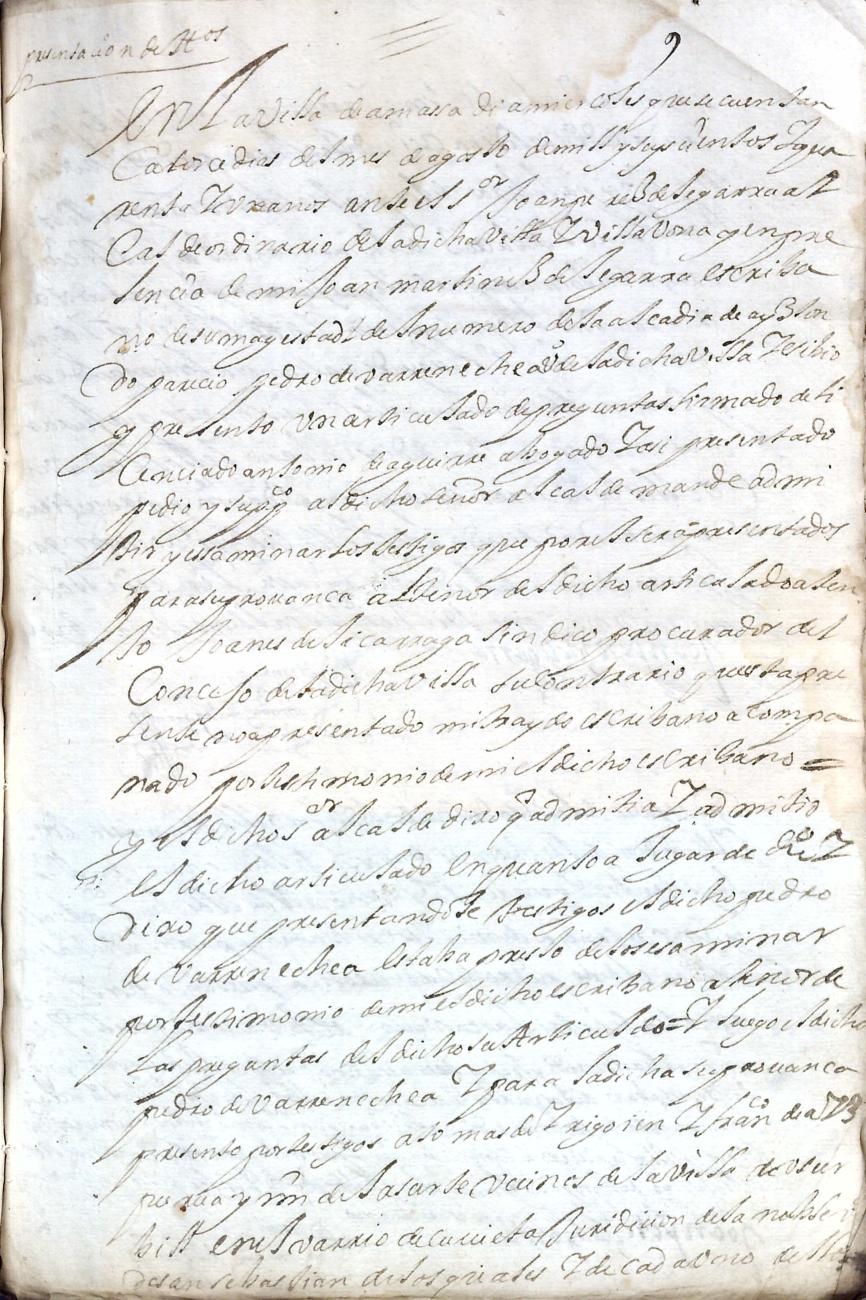 presentacion de tos
9
En la Villa de amassa dia miercoles que se cuentan
Catorce dias del mes de agosto de mill y seys cientos y qua
renta y un anos ante el sor Joan perez de segarra al
Cal de ordinario de la dicha Villa y Villa Vona y en pre
sencia de mi Joan martinez de segarra escriba
no de su magestad del numero de la alcadia de ayzton
do parecio pedro de varrenechea vo de la dicha Villa y esibio
y presento un articulado de preguntas firmado del li
cenciado antonio de aguirre abogado y asi presentado
pedio y suppco al dicho senor alcalde mande admi
tir y essaminar los testigos que por el seran presentados
para su provanca al tenor del dicho articulado a ten
to Joanes de licarraga sindico procurador del
Concejo de la dicha Villa su contrario questa pre
sente no a presentado ni traydo escribano a compa
nado por testimonio de mi el dicho escribano =
y el dicho sor alcalde dixo q admitia y admitio
el dicho articulado en quanto a lugar de dro y
dixo que presentandole testigos el dicho pedro
de varrenechea estaba presto de los esaminar
por testimonio de mi el dicho escribano a tenor de
las preguntas del dicho su articulado = y luego el dicho
pedro de varrenechea y para la dicha su provanca
presento por testigos a tomas de yrigoien y franco de
y mn de lasarte vecinos de la villa de usur
bill en el varrio de curieta Juridicion de la
de san sebastian de los quales y de cada uno de